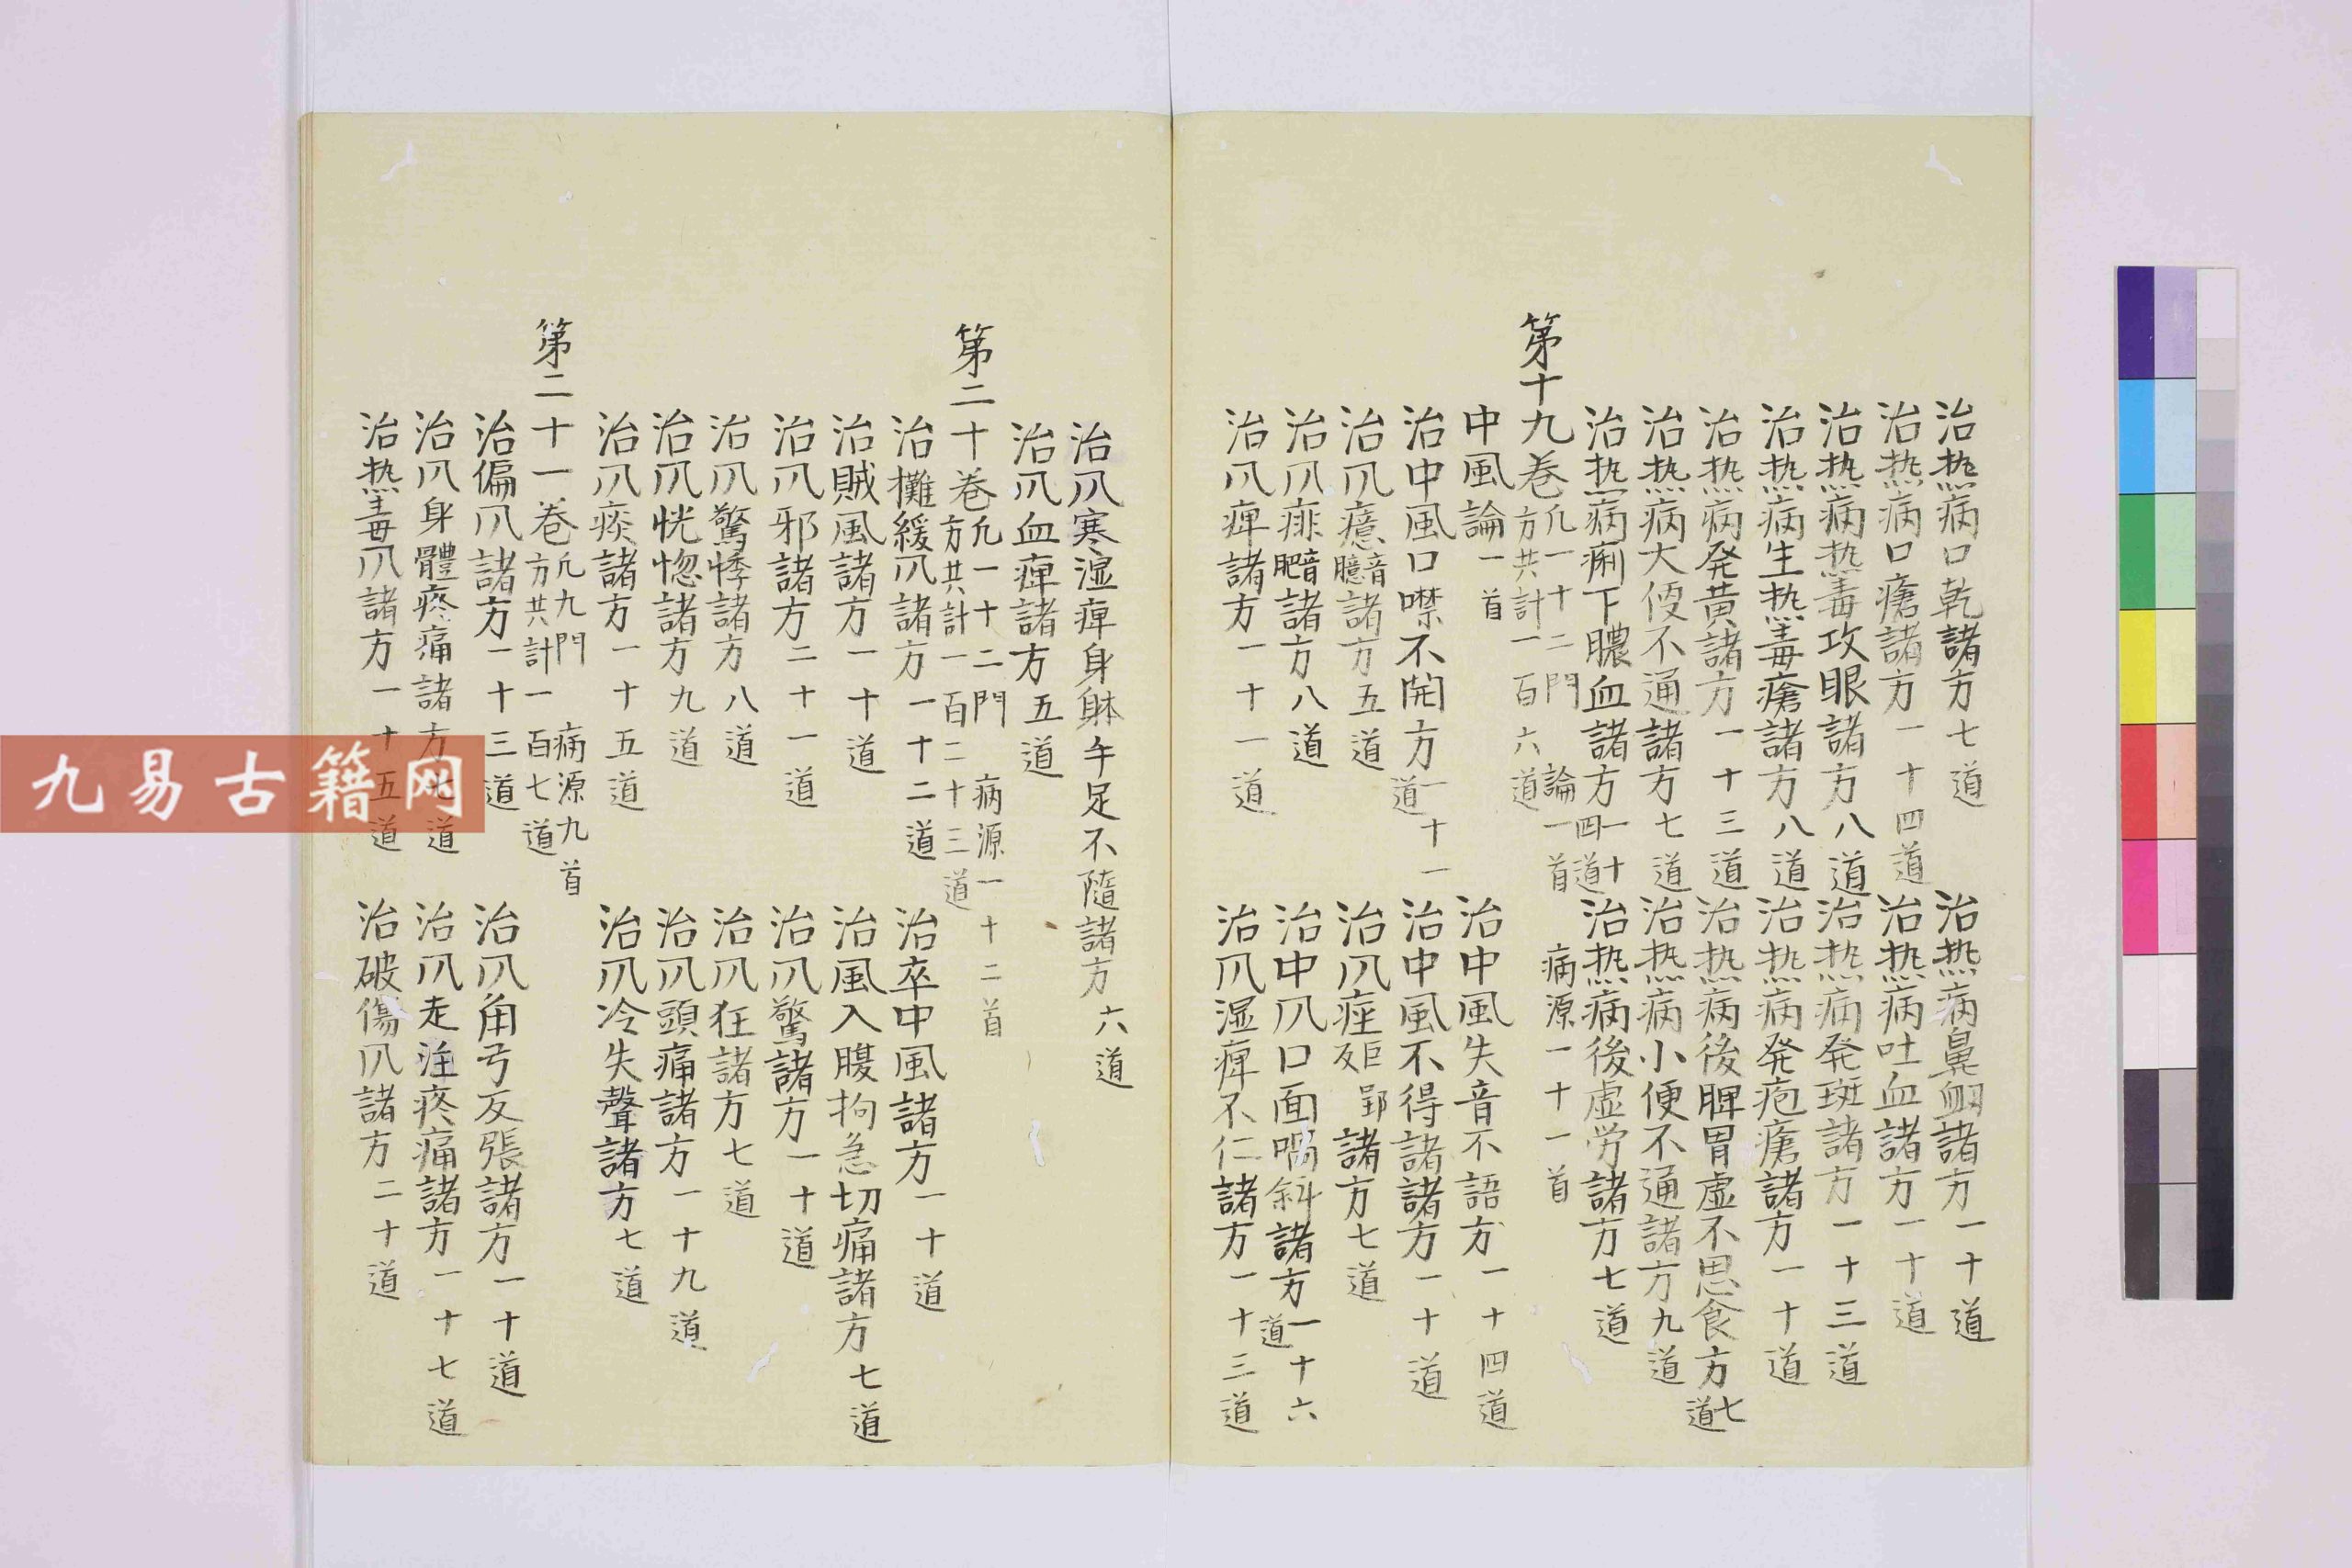 治热病口乾諸方七道　治热病鼻衂諸方一十道
治热病口瘡諸方一十四道　治热病吐血諸方一十道
治热病热毒攻眼諸方八道　治热病発斑諸方一十三道
治热病生热毒瘡諸方八道　治热病発疱瘡諸方一十道
治热病発黄諸方一十三道　治热病後脾胃虚不思食方七道
治热病大便不通諸方七道　治热病小便不通諸方九道
治热病痢下膿血諸方一十四道　治热病後虚労諸方七道
第十九巻凢一十二門　論一首　病源一十一首　方共計一百六道
中風論一首　治中風失音不語方一十四道
治中風口噤不開方一十一道　治中風不得諸諸方一十道
治𠘨癔音臆諸方五道　治𠘨痓諸方七道
治𠘨痱音肥諸方八道　治中𠘨口面喎斜諸方一十六道
治𠘨痺諸方一十一道　治𠘨湿痺不仁諸方一十三道
治𠘨寒湿痺身躰手足不隨諸方六道
治𠘨血痺諸方五道
第二十巻凢一十二門　病源一十二首　方共計一百二十三道
治攤緩𠘨諸方一十二道　治卒中風諸方一十道
治賊風諸方一十道　治風入腹拘急切痛諸方七道
治𠘨邪諸方二十一道　治𠘨驚諸方一十道
治𠘨驚悸諸方八道　治𠘨狂諸方七道
治𠘨恍惚諸方九道　治𠘨頭痛諸方一十九道
治𠘨痰諸方一十五道　治𠘨冷失聲諸方七道
第二十一巻凢九門　病源九首　方共計一百七道
治偏𠘨諸方一十三道　治𠘨角弓反張諸方一十道
治𠘨身體疼痛諸方七道　治𠘨走注疼痛諸方一十七道
治热毒𠘨諸方一十五道　治破傷𠘨諸方二十道
九易古籍网